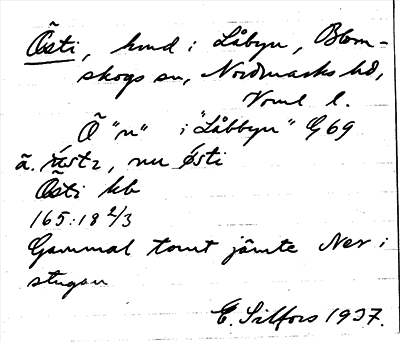 Östi, hmd i Låbyn, Blom-
skogs sn, Nordmarks hd,
Värml l.
Õ "n" i "Låbbyn" G 69
ä. råstz, nu østi
Östi kb
165:18 2/3
Gammal tomt jämte Ner i
stugan
E. Silfors 1937.